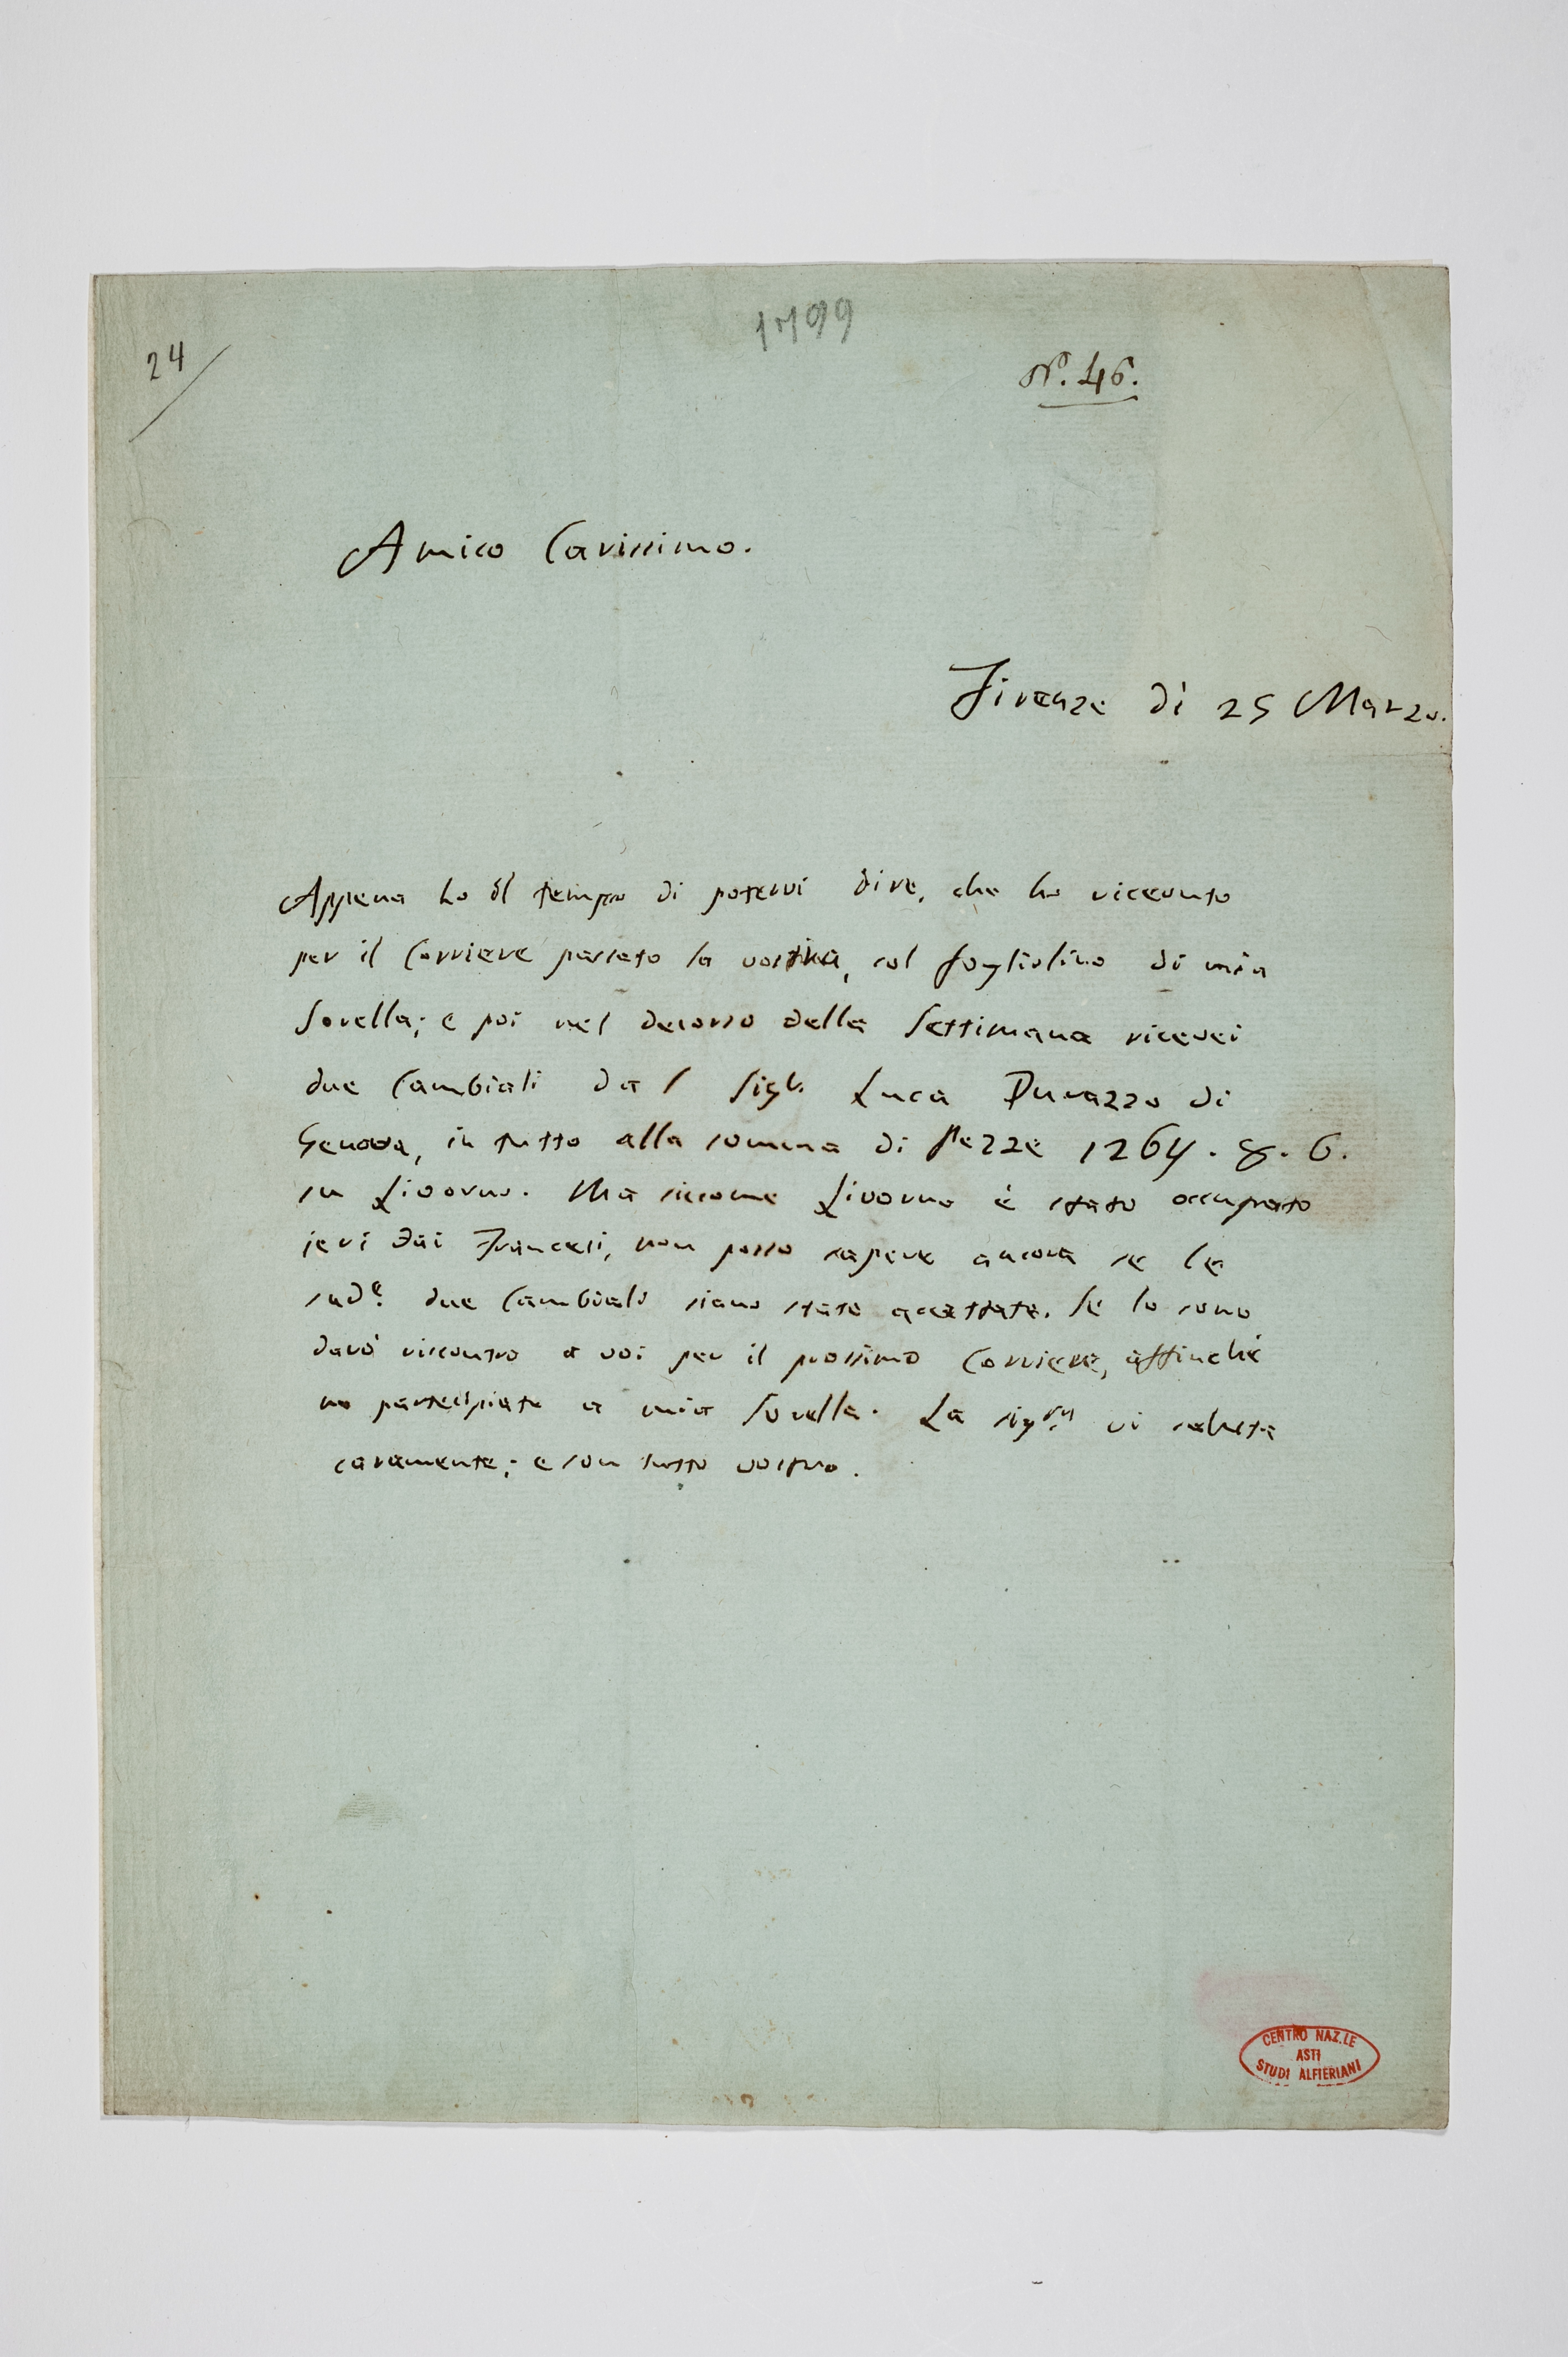 24
1799
N.º 46.
Amico Carissimo.
Firenze dì 25 Marzo.
Appena ho il tempo di potervi dire, che ho ricevuto
per il Corriere passato la vostra, col fogliolino di mia
Sorella; e poi nel decorso della Settimana ricevei
due Cambiali dal Sigr. Luca Durazzo di
Genova, in tutto alla somma di Pezze 1264. 8. 6.
su Livorno. Ma siccome Livorno è stato occupato
jeri dai Francesi, non posso sapere ancora se le
sud.e due Cambiali siano state accettate. Se lo sono
darò riscontro a voi per il prossimo Corriere, affinché
ne partecipiate a mia Sorella. La sig.ra vi saluta
caramente; e son tutto vostro.
CENTRO NAZ.LE
ASTI
STUDI ALFIERIANI